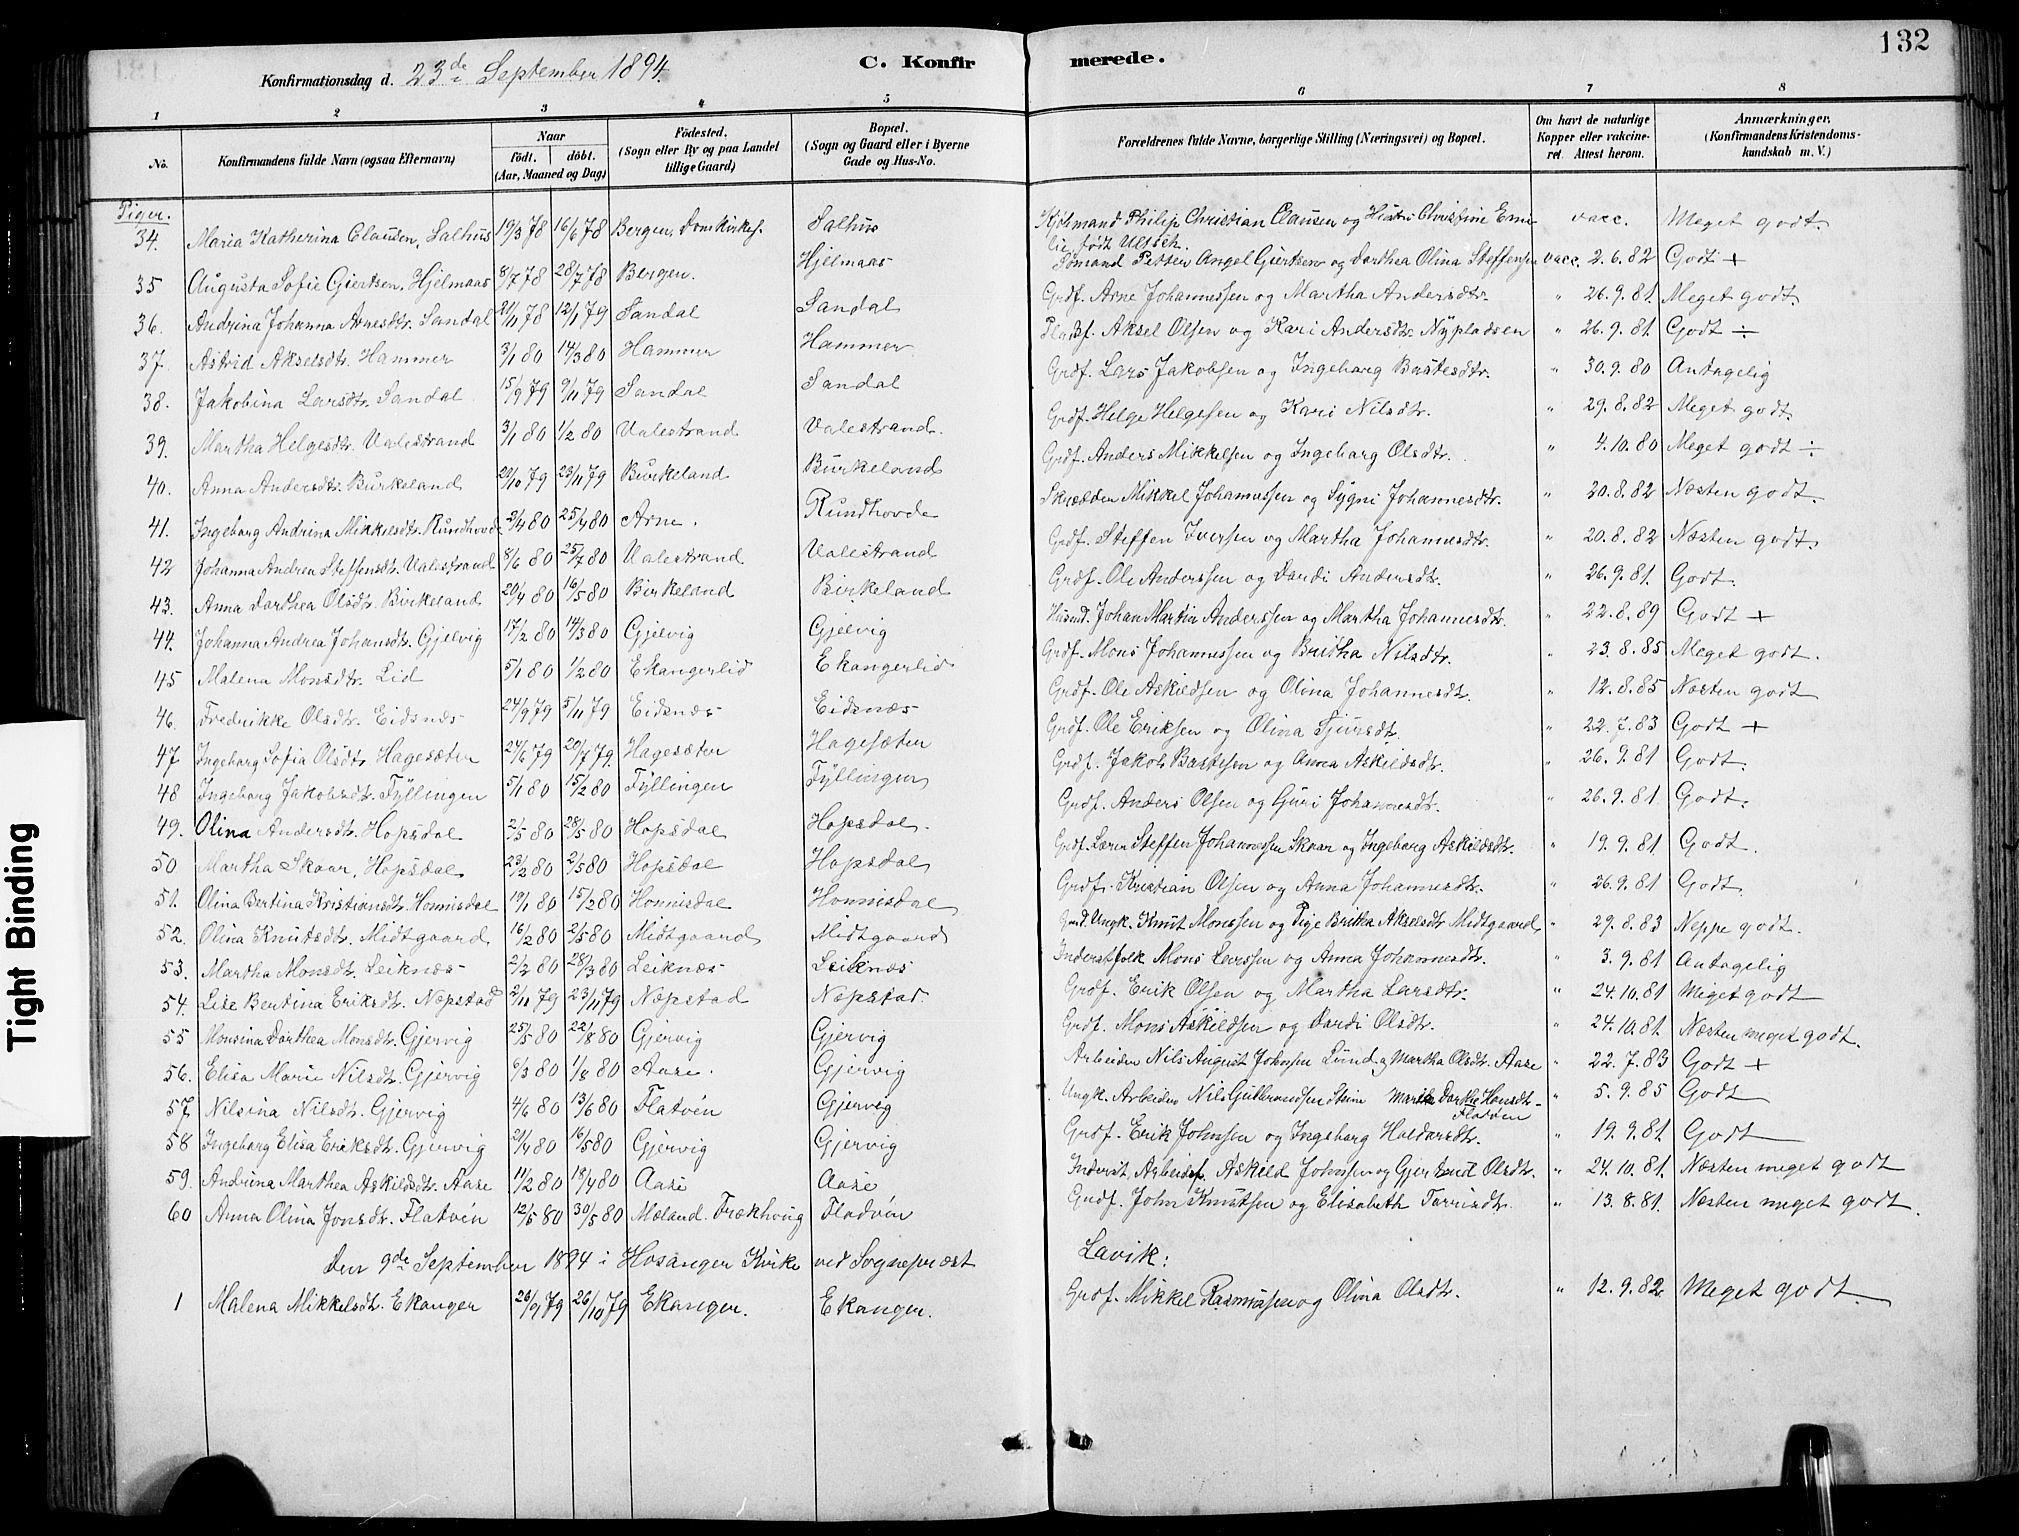 132
Konfirmationsdag d. 23de September 1894.
C. Konfirmerede.
1 2 3 4 5 6 7 8
No. Konfirmandens fulde Navn (ogsaa Efternavn) Naar født. døbt. (Aar, Maaned og Dag) Födested. (Sogn eller By og paa Landet tillige Gaard) Bopæl. (Sogn og Gaard eller i Byerne Gade og Hus-No.) Forældrenes fulde Navne, borgerlige Stilling (Næringsvei) og Bopæl. Om havt de naturlige Kopper eller vakcineret. Attest herom. Anmærkninger. (Konfirmandens Kristendomskundskab m. V.)
Piger.
34. Maria Katherina Clausen, Salhus 19/3 78 16/6 78 Bergen, Domkirkes. Salhus Kjøbmand Philip Christian Clausen og Hustru Christine Emilie født Ultsch. vacc. Meget godt.
35 Augusta Sofie Giertsen, Hjelmaas 8/7 78 28/7 78 Bergen. Hjelmaas Sømand Petter Angel Giertsen og Dorthea Olina Steffensen vacc. 2.6.82 Godt +
36. Andrina Johanna Arnesdtr. Sandal 21/11 78 12/1 79 Sandal Sandal Grdf. Arne Johannessen og Martha Andersdtr. " 26.9.81. Meget godt.
37. Astrid Akselsdtr. Hammer 3/1 80 14/3 80 Hammer Hammer Pladsf. Aksel Olsen og Kari Andersdtr. Nypladsen " 26.9.81. Godt ÷
38. Jakobina Larsdtr. Sandal 15/9 79 9/11 79 Sandal Sandal Grdf. Lars Jakobsen og Ingeborg Bastesdtr. " 30.9.80 Antagelig
39. Martha Helgesdtr. Valestrand 3/1 80 1/2 80 Valestrand Valestrand. Grdf. Helge Helgesen og Kari Nilsdtr. " 29.8.82 Meget godt.
40. Anna Andersdtr. Birkeland 29/10 79 23/11 79 Birkeland Birkeland Grdf. Anders Mikkelsen og Ingeborg Olsdtr. " 4.10.80 Meget godt ÷
41. Ingeborg Andrina Mikkelsdtr. Rundhovde 2/4 80 25/4 80 Arne. Rundhovde Skrædder Mikkel Johannessen og Sygni Johannesdtr. " 20.8.82 Næsten godt.
42 Johanna Andrea Steffensdtr. Valestrand 8/6 80 25/7 80 Valestrand Valestrand Grdf. Steffen Iversen og Martha Johannesdtr. " 20.8.82 Næsten godt.
43. Anna Dorthea Olsdtr. Birkeland 20/4 80 16/5 80 Birkeland Birkeland Grdf. Ole Anderssen og Dordi Andersdtr. " 26.9.81. Godt.
44. Johanna Andrea Johansdtr. Gjelvig 17/2 80 14/3 80 Gjelvig Gjelvig Husmd. Johan Martin Anderssen og Martha Johannesdtr. " 22.8.89 Godt +
45 Malena Monsdtr. Lid 5/1 80 1/2 80 Ekangerlid Ekangerlid Grdf. Mons Johannessen og Britha Nilsdtr. " 23.8.85 Meget godt.
46. Fredrikke Olsdtr. Eidsnæs 24/9 79 5/11 79 Eidsnæs Eidsnæs Grdf. Ole Askildsen og Olina Johannesdtr. " 12.8.85 Næsten godt
47 Ingeborg Sofia Olsdtr. Hagesæter 24/6 79 20/7 79. Hagesæter Hagesæter Grdf. Ole Eriksen og Olina Sjursdt. " 22.7.83 Godt +
48 Ingeborg Jakobsdtr. Fyllingen 5/1 80 15/2 80 Fyllingen Fyllingen Grdf. Jakob Bastesen og Anna Askildsdtr. " 26.9.81 Godt.
49. Olina Andersdtr. Hopsdal 2/5 80 28/5 80 Hopsdal Hopsdal. Grdf. Anders Olsen og Guri Johannesdtr. " 26.9.81 Godt.
50 Martha Skaar, Hopsdal 23/2 80 2/5 80 Hopsdal Hopsdal Grdf. Lærer Steffen Johannessen Skaar og Ingeborg Askildsdtr. " 19.9.81. Godt.
51. Olina Bertina Kristiansdtr. Honnisdal 19/1 80 15/2 80 Honnisdal Honnisdal Grdf. Kristian Olsen og Anna Johannesdtr. " 26.9.81 Godt.
52. Olina Knutsdtr. Midtgaard 16/2 80 2/5 80 Midtgaard Midtgaard Ungk. Knut Monssen og Pige Britha Akselsdtr. Midtgaard " 29.8.83 Neppe godt.
53. Martha Monsdtr. Leiknæs 2/2 80 28/3 80 Leiknæs Leiknæs Inderstfolk Mons Larssen og Anna Johannesdtr. " 3.9.81 Antagelig
54. Lise Bertina Eriksdtr. Næpstad 2/11 79 23/11 79 Næpstad Næpstad. Grdf. Erik Olsen og Martha Larsdtr. " 24.10.81 Meget godt
55 Monsina Dorthea Monsdtr. Gjervig 25/5 80 22/8 80 Gjervig Gjervig Grdf. Mons Askildsen og Dordi Olsdtr. " 24.10.81. Næsten meget godt.
56. Elisa Marie Nilsdt. Gjervig 9/3 80 1/8 80 Aase. Gjervig Arbeider Nils August Johnsen Lund og Martha Olsdtr. Aase " 22.7.83 Godt +
57 Nilsina Nilsdt. Gjervig 4/6 80 13/6 80 Flatvén Gjervig Ungk. Arbeider Nils Gulbrandsen Steim Martha Dorthe Hansdt. Flatvén " 5.9.85 Godt
58 Ingeborg Elisa Eriksdt. Gjervig 21/4 80 16/5 80 Gjervig Gjervig Grdf. Erik Johnssen og Ingeborg Haldorsdtr. " 19.9.81. Godt
59. Andrina Marthea Askildsdtr. Aase 11/2 80 18/4 80 Aase Aase Inderst, Arbeidsf. Askild Johnsen og Gjertrud Olsdtr. " 24.10.81. Næsten meget godt
60 Anna Olina Jonsdtr. Flatvén 12/5 80 30/5 80 Mæland. Frækhaug Flatvén Grdf. John Knutsen og Elisabeth Torrisdtr. " 13.8.81. Næsten meget godt.
Den 9de September 1894 i Hosanger Kirke ved Sognepræst Lavik:
1 Malena Mikkelsdt. Ekanger 26/9 79 26/10 79 Ekanger. Ekanger. Grdf. Mikkel Rasmussen og Olina Olsdtr. " 12.9.82. Meget godt.
Tight Binding